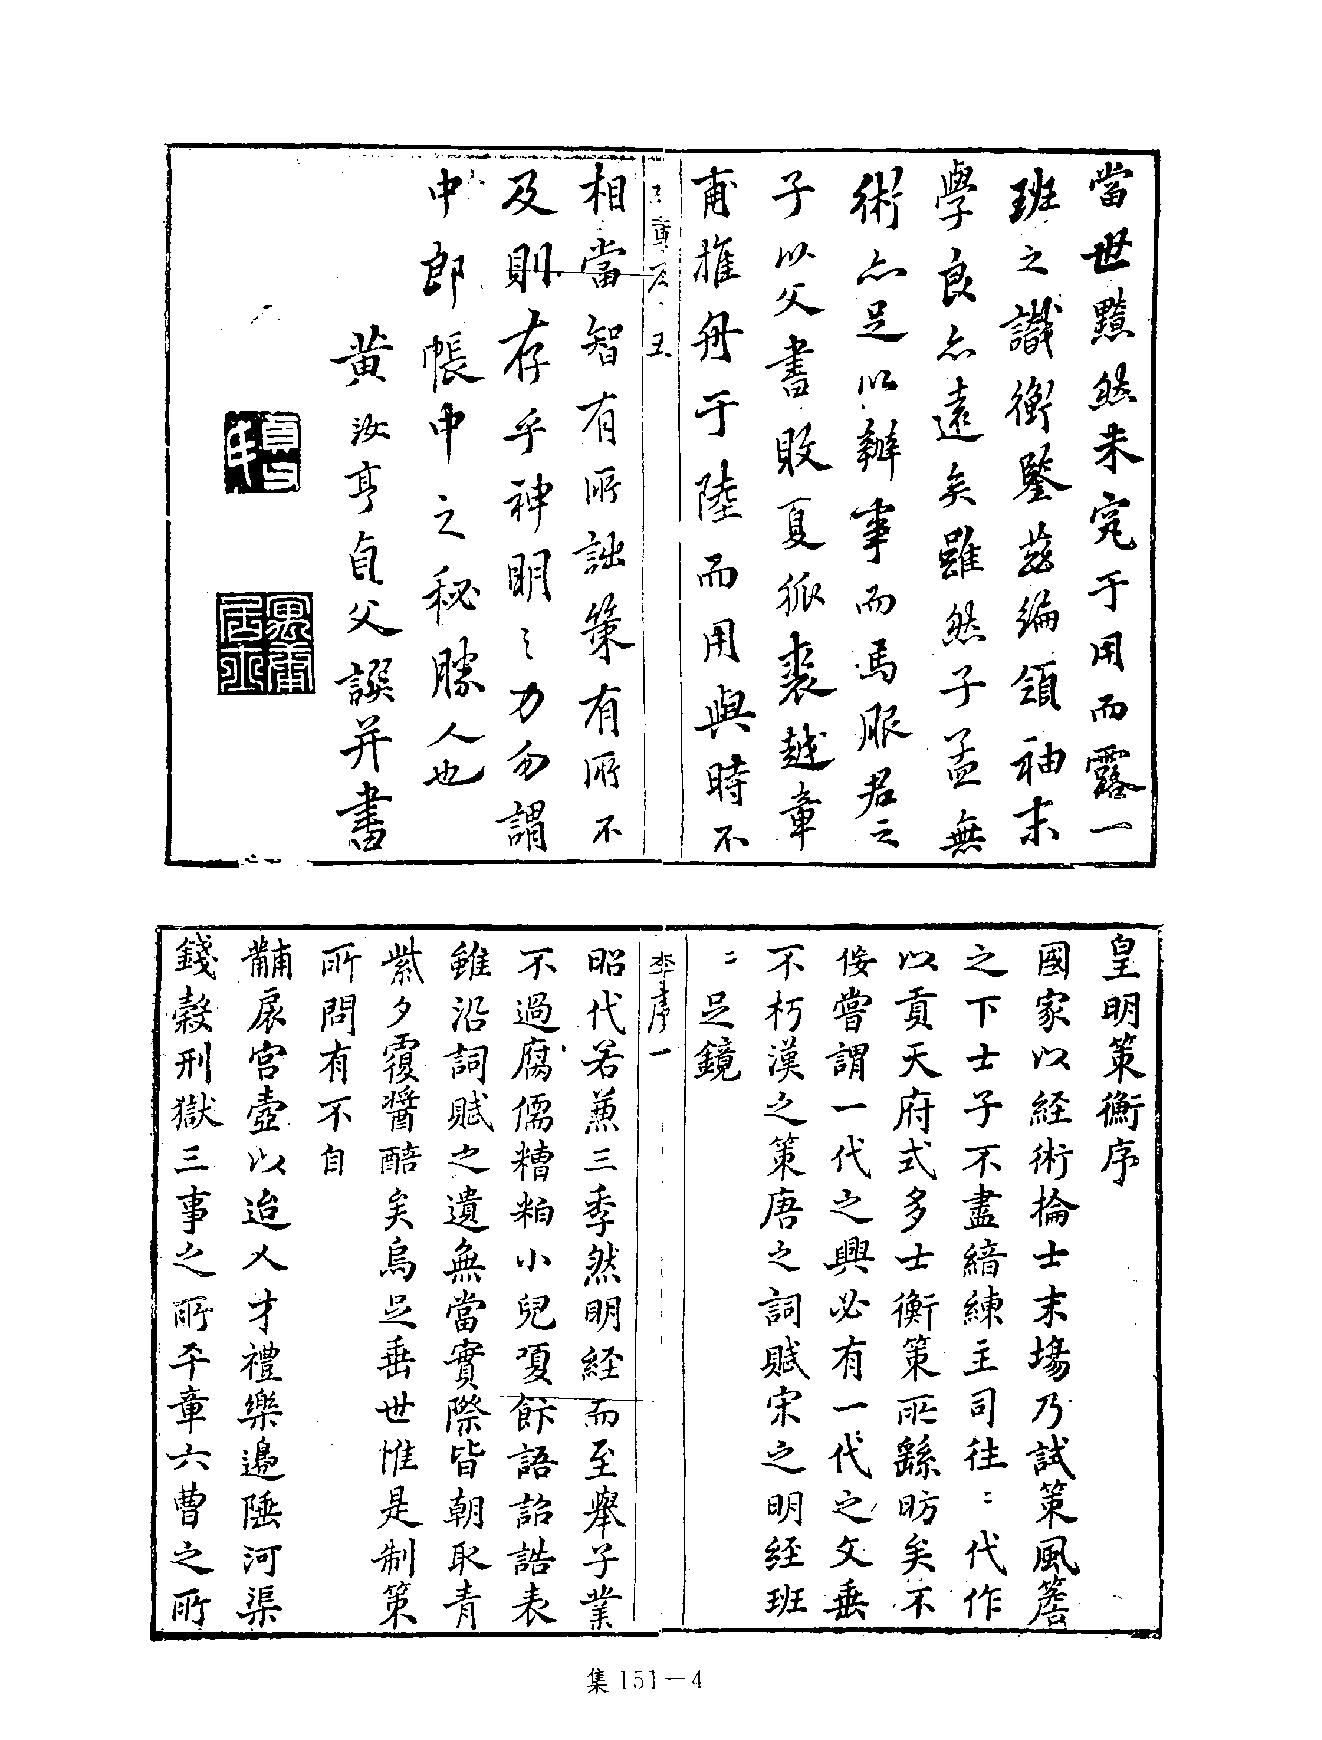 當世黯然未究于用而露一
班之識衡鑒茲編領袖末
學良亦遠矣雖然子孟無
術亦足以辦事而馬服君之
子以父書敗夏狐裘越章
甫推舟于陸而用與時不
相當智有所詘策有所不
及則存乎神明神明之力勿謂
中郎帳中之秘勝人也
黃汝亨貞父譔并書
皇明策衡序
國家以経術掄士末場乃試策風簷
之下士子不盡繙練主司往〻代作
以貢天府式多士衡策所繇昉矣不
佞嘗謂一代之興必有一代之文垂
不朽漢之策唐之詞賦宋之明経班
〻足鏡
李序 一
昭代若蒹三季然明経而至舉子業
不過腐儒糟粕小兒飣語詔誥表
雖沿詞賦之遺無當實際皆朝取青
紫夕覆醬醅矣烏足垂世惟是制策
所問有不自
黼扆宮壼以迨人才禮樂邊陲河渠
錢穀刑獄三事之所平章六曹之所
集 151－4